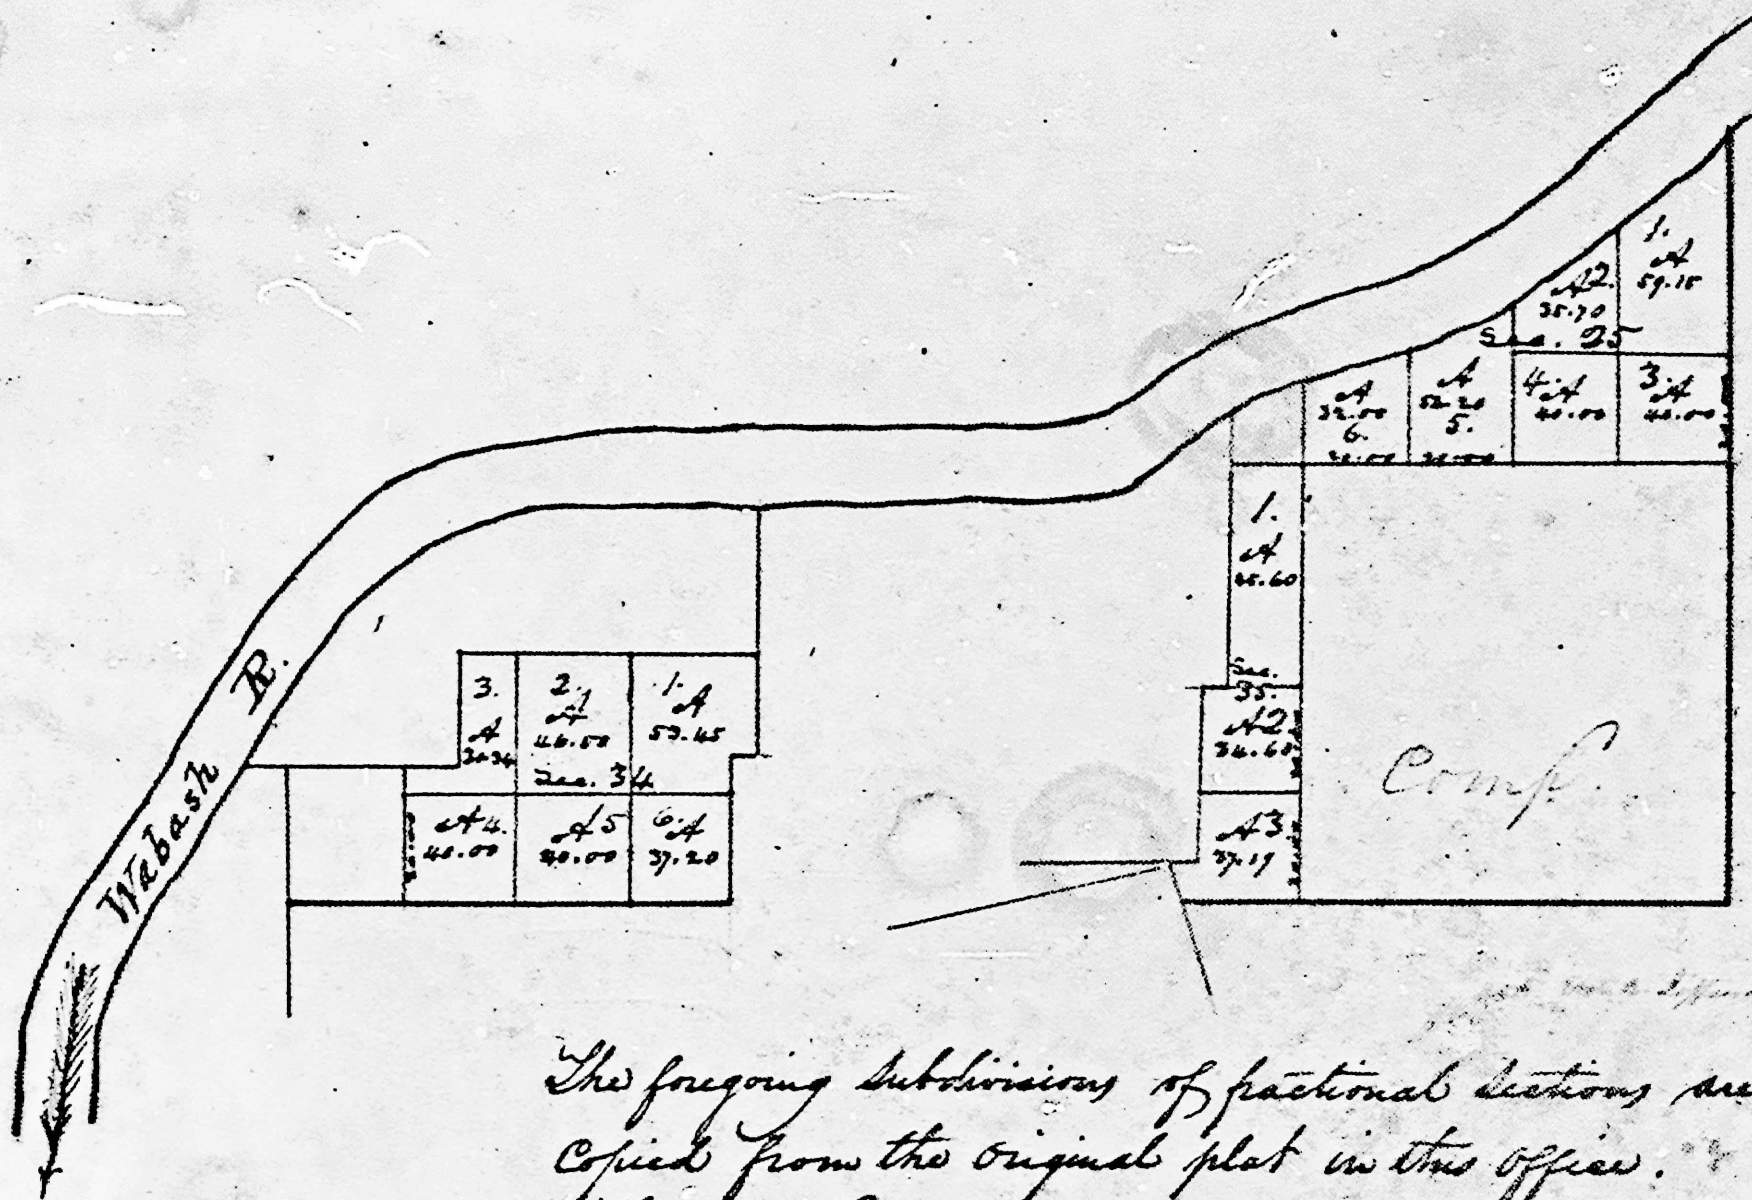 1.
A
59.15
A2.
35.70
Sec. 25
A
32.00
6.
A
5.
4. A
40.00
3. A
40.00
1.
A
Sec.
35.
A2
34.60
A3
37.19
Comp.
3.
A
2.
A
46.50
1.
A
53.45
Sec. 34
A4.
40.00
A5
40.00
6. A
37.20
Wabash R.
The foregoing subdivisions of fractional sections are
Copied from the original plat in this office.